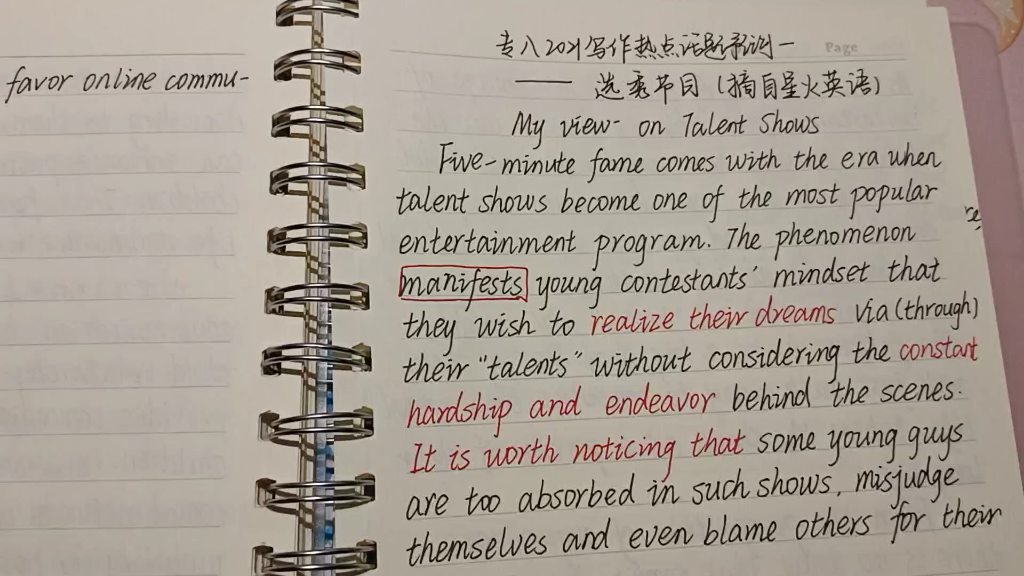 favor online commu-
专八2021写作热点话题预测一
Page
—— 选秀节目 (摘自星火英语)
My view on Talent Shows
Five-minute fame comes with the era when
talent shows become one of the most popular
entertainment program. The phenomenon
manifests young contestants' mindset that
they wish to realize their dreams via (through)
their "talents" without considering the constant
hardship and endeavor behind the scenes.
It is worth noticing that some young guys
are too absorbed in such shows, misjudge
themselves and even blame others for their